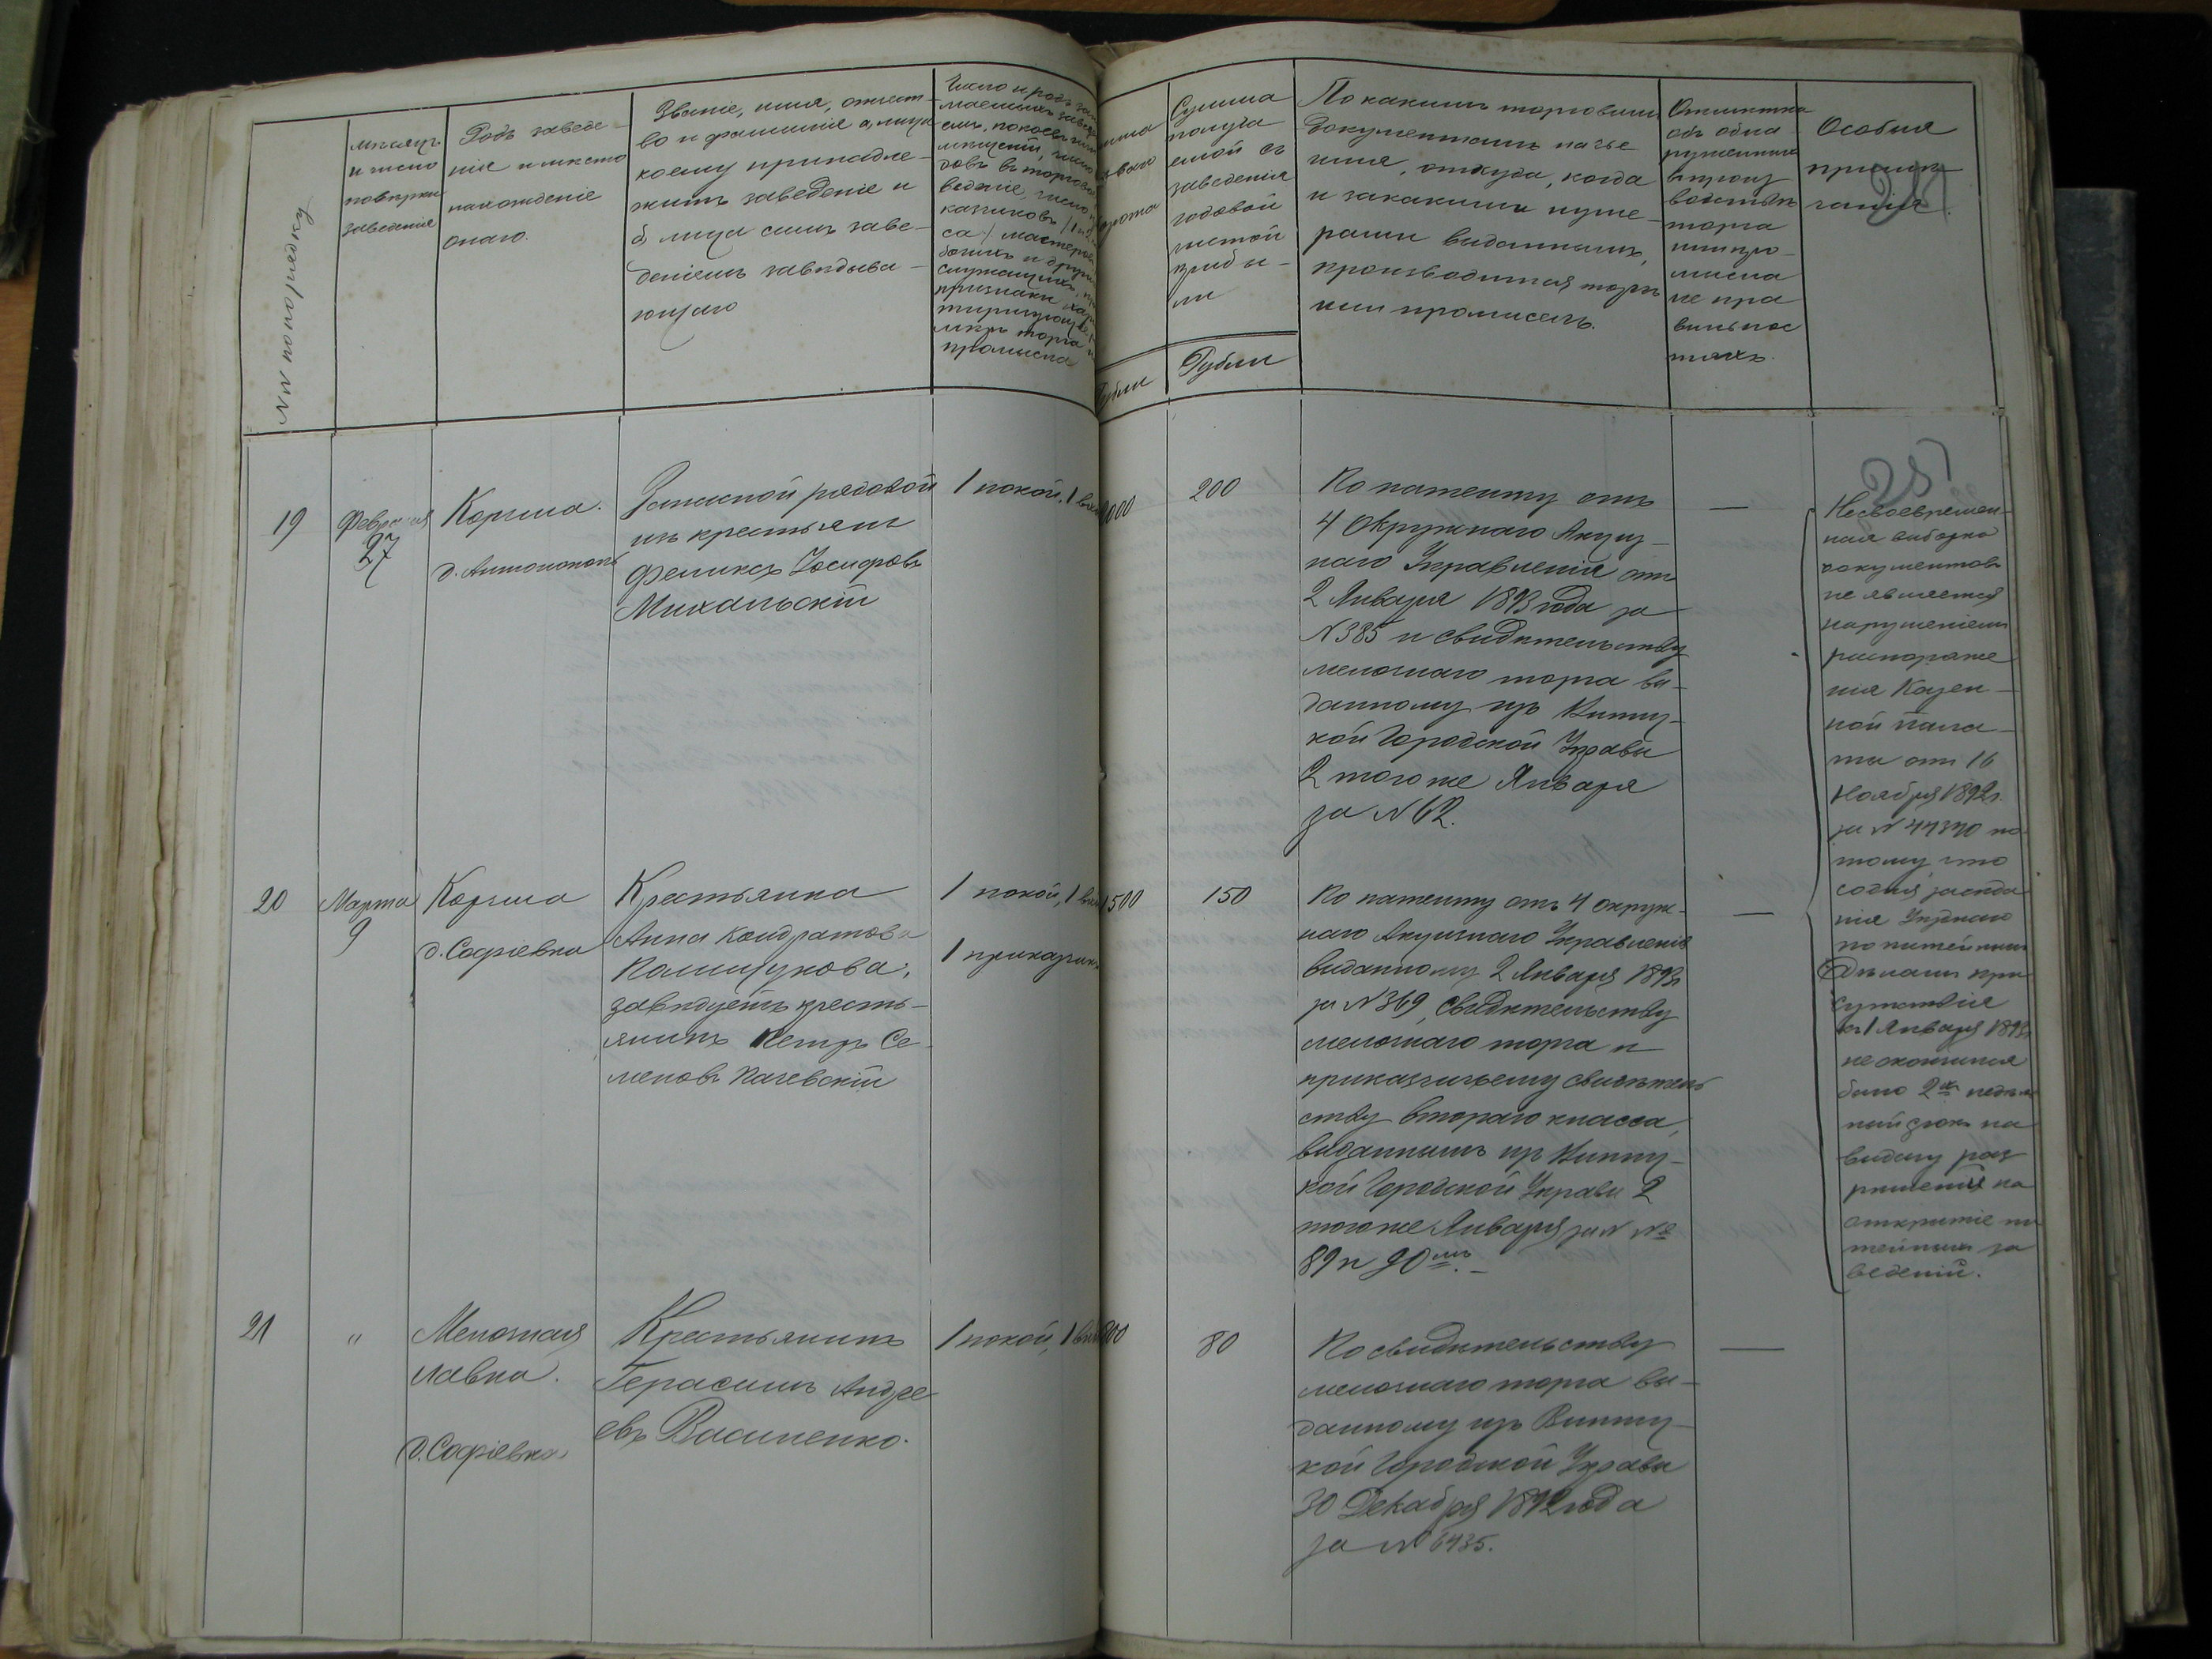 № по порядку
Мѣсяцъ
и число
повѣрки
заведенія
Родъ заведе-
нія и мѣсто
нахожденіе
онаго.
Званіе, имя, отчест-
во и фамилія а, лица
коему принадле-
житъ заведеніе и
б, лица симъ заве-
деніемъ завѣдыва-
ющаго
Число и родъ
емъ, покоевъ
казчиковъ
мастеров
служащихъ
признаки
торга
промысла
Рубли
Сумма
получа
емой съ
заведенія
годовой
чистой
прибы-
ли
Рубли
По какимъ торговымъ
документамъ на чье
имя, откуда, когда
и за какими нуме-
рами выданнымъ,
производится торгъ
или промыселъ.
Отмѣтка
объ обна-
руженныхъ
въ произ
водствѣ
торга
или про-
мысла
не пра
вильнос
тяхъ.
Особыя
примѣ-
чанія.
25
19
Февраля
27
Корчма.
д. Антонополь
Запасной рядовой
изъ крестьянъ
Феликсъ Іосифовъ
Михальскій
1 покой, 1
000
200
По патенту отъ
4 Окружнаго Акциз-
наго Управленія отъ
2 Января 1893 года за
№ 385 и свидѣтельству
мелочнаго торга вы-
данному изъ Винниц-
кой Городской Управы
2 того же Января
за № 62.
—
Несвоевремен-
ная выборка
документовъ
не является
нарушеніемъ
распоряже
нія Казен-
ной Пала-
ты отъ 16
Ноября 1892 г.
за № 44370 по-
тому что
со дня засѣда
нія Уѣзднаго
по питейнымъ
Дѣламъ при
сутствія
къ 1 Января 1893 г.
не окончился
было 2хъ недѣль
ный срокъ на
выдачу раз
рѣшенія на
открытіе пи
тейныхъ за
веденій.
20
Марта
9
Корчма
д. Софіевка
Крестьянка
Анна Кондратова
Полищукова;
завѣдуетъ кресть-
янинъ Петръ Се-
меновъ Пачевскій
1 покой, 1
1 прикащикъ
1500
150
По патенту отъ 4 окруж-
наго Акцизнаго Управленія
выданному 2 Января 1893 г.
за № 369, свидѣтельству
мелочнаго торга и
приказчичьему свидѣтель
ству втораго класса,
выданнымъ изъ Винниц-
кой Городской Управы 2
того же Января за № №
89 и 90мъ. —
—
21
"
Мелочная
лавка.
д. Софіевка
Крестьянинъ
Герасимъ Андре
евъ Василенко.
1 покой, 1
800
80
По свидѣтельству
мелочнаго торга вы-
данному изъ Винниц-
кой Городской Управы
30 Декабря 1892 года
за № 6435.
—